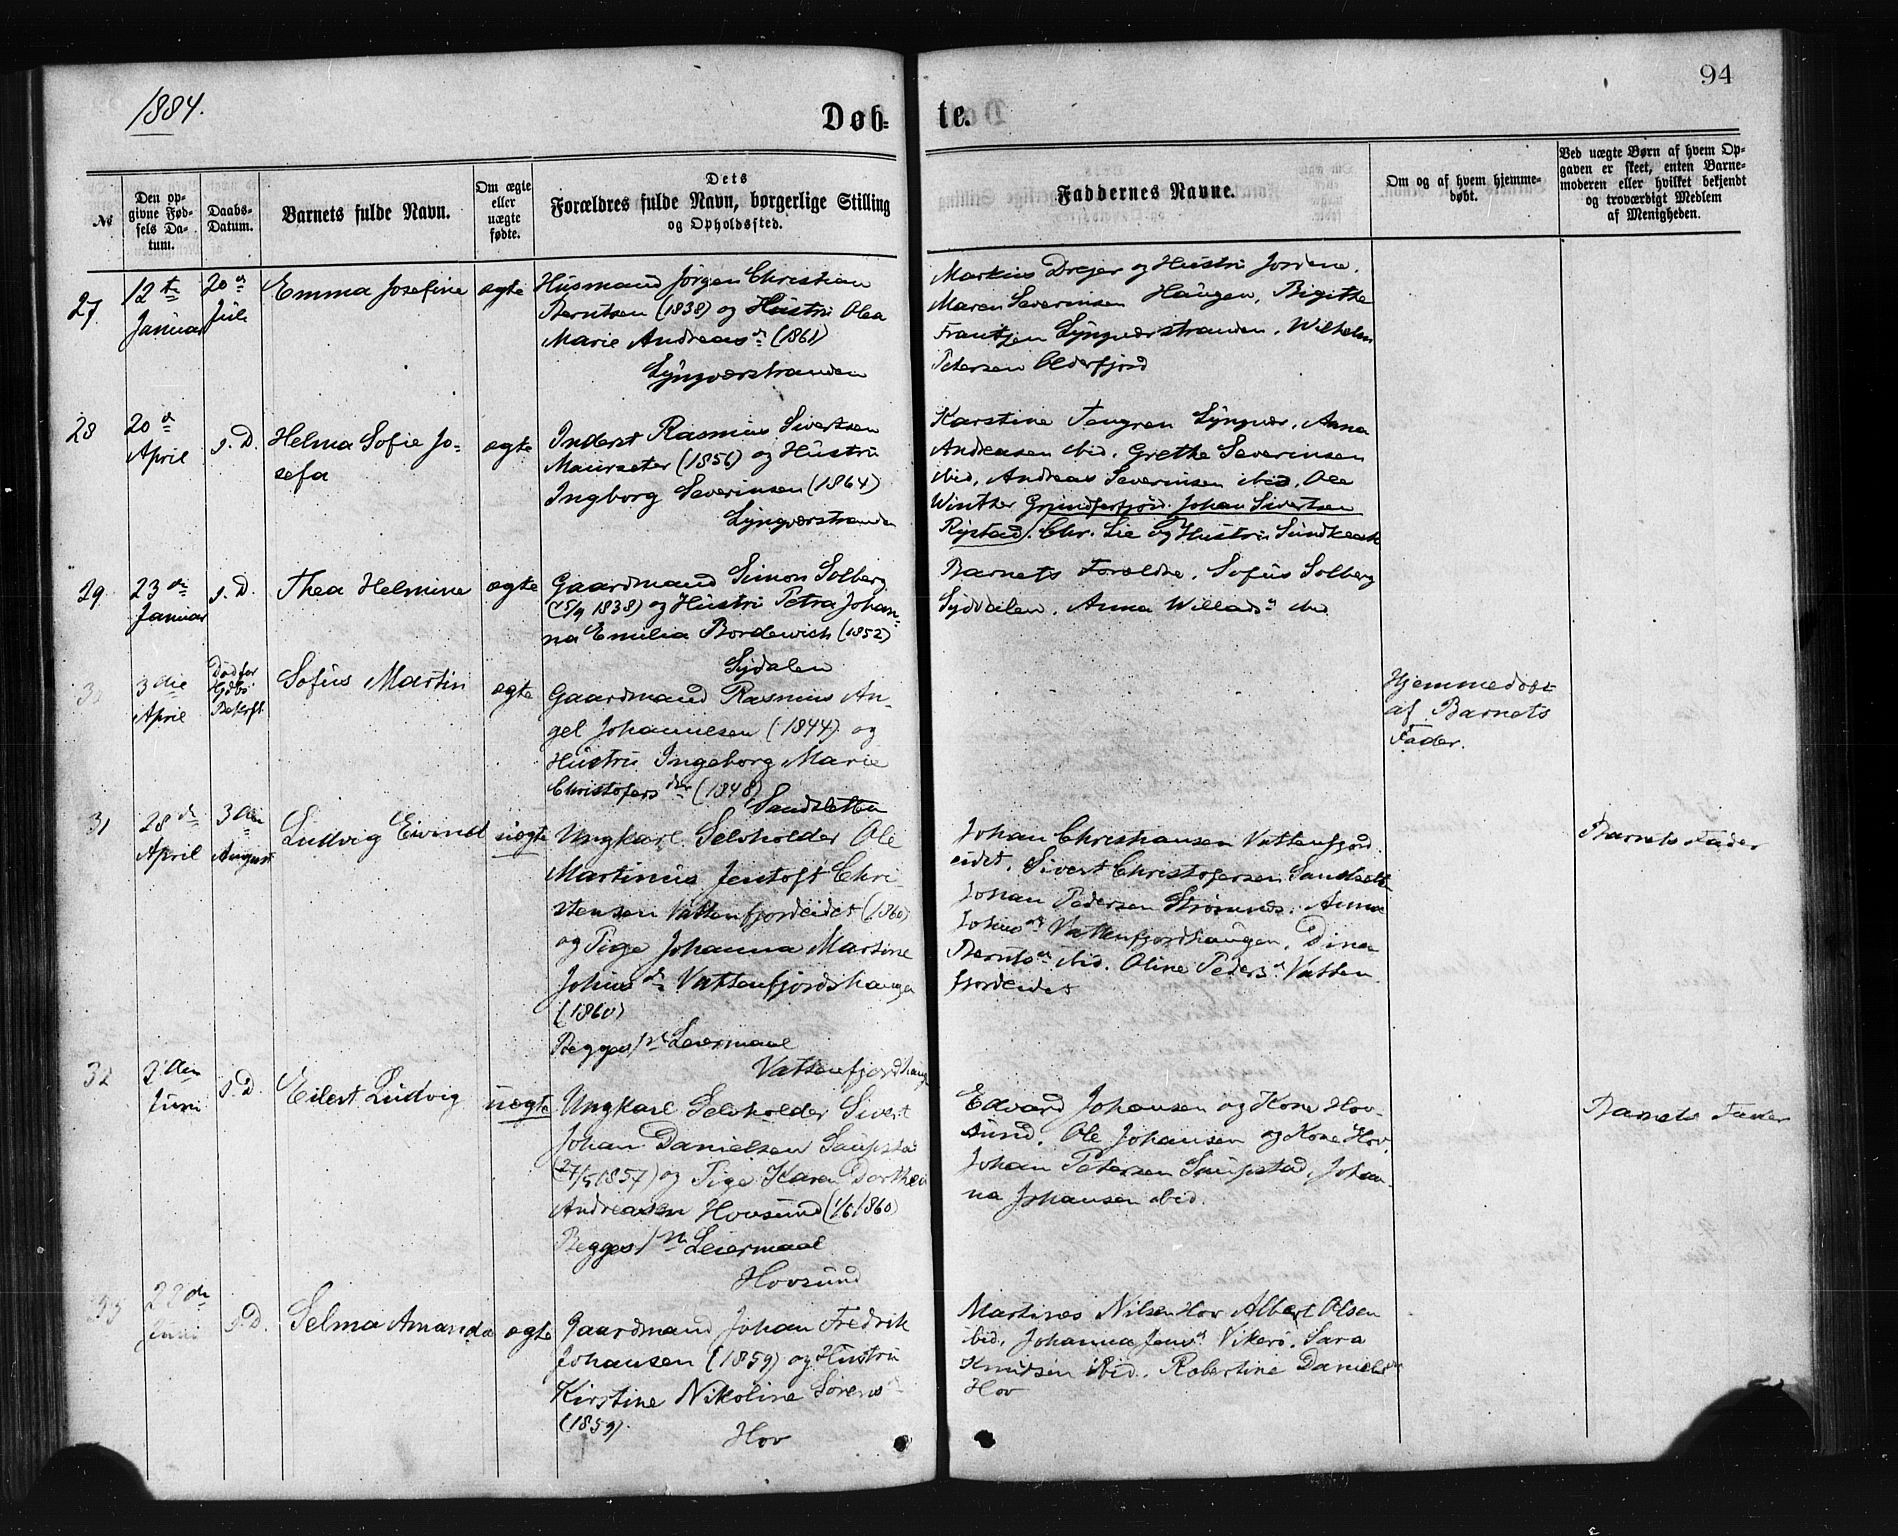 94
1884.
Døb-
te.
№
Den op-
givne Fød-
sels Da-
tum.
Daabs-
Datum.
Barnets fulde Navn.
Om ægte
eller
uægte
fødte.
Dets
Forældres fulde Navn, borgerlige Stilling
og Opholdssted.
Faddernes Navne.
Om og af hvem hjemme-
døbt.
Ved uægte Børn af hvem Op-
gaven er skeet, enten Barne-
moderen eller hvilket bekjendt
og troværdigt Medlem
af Menigheden.
27
12te
Januar
20de
Juli
Emma Josefine
ægte
Husmand Jørgen Christian
Berntsen (1838) og Hustru Olea
Marie Andreasd (1861)
Lyngværstranden
Markus Drejer og Hustru Jordine.
Maren Severinsen Haugen, Birgithe
Frantzen Lyngværstranden, Wilhelm
Petersen Olderfjord
28
20de
April
s. D.
Helma Sofie Jo-
sefa
ægte
Inderst Rasmus Sivertsen
Maurseter (1856) og Hustru
Ingborg Severinsen (1864)
Lyngværstranden
Karstine Tengren Lyngvær, Anna
Andreasen ibid. Grethe Severinsen
ibid, Andreas Severinsen ibid, Ole
Winther Grundforfjord. Johan Sivertsen
Rystad. Chr. Lie og Hustru Sundklak
29
23de
Januar
s. D.
Thea Helmine
ægte
Gaardmand Simon Solberg
(25/9 1838) og Hustru Petra Johan-
na Emilia Bordewich (1852)
Sydalen
Barnets Forældre, Sofus Solberg
Syddalen, Anna Willadsd ibid
3die
April
Død før
Sofus Martin
ægte
Gaardmand Rasmus An-
gel Johannesen (1844) og
Hustru Ingeborg Marie
Christofersdtr (1848)
Sandsletten
Hjemmedøbt
af Barnets
Fader.
31
28de
April
3die
August
Ludvig Eivind
uægte
Ungkarl Selvholder Ole
Martinus Jentoft Chri-
stensen Vattenfjordeidet (1860)
og Pige Johanna Martine
Johusd Vattenfjordshaugen
(1860)
Begges 1ste Leiermaal
Vattenfjordhaug
Johan Christiansen Vattenfjord
eidet, Sivert Christofersen Sandslett
Johan Pedersen Strømnes. Anna
Johusd Vattenfjordhaugen, Dina
Berntsd ibid. Oline Pedersd Vatten
fjordeidet
Barnets Fader
32
2den
Juni
s. D.
Eilert Ludvig
uægte
Ungkarl Selvholder Sivert
Johan Danielsen Saupstad
(27/5 1857) og Pige Karen Dorthea
Andreasen Hovsund (1/6 1860)
Begges 1ste Leiermaal
Hovsund
Edvard Johansen og Kone Hov-
sund. Ole Johansen og Kone Hov.
Johan Petersen Saupstad, Johan-
na Johansen ibid.
Barnets Fader
33
22de
Juni
s. D.
Selma Amanda
ægte
Gaardmand Johan Fredrik
Johansen (1859) og Hustru
Kirstine Nikoline Sørensd
(1859)
Hov
Martines Nilsen Hov Albert Olsen
ibid, Johanna Jensd Vikerø. Sara
Knudsen ibid. Robertine Daniels
Hov